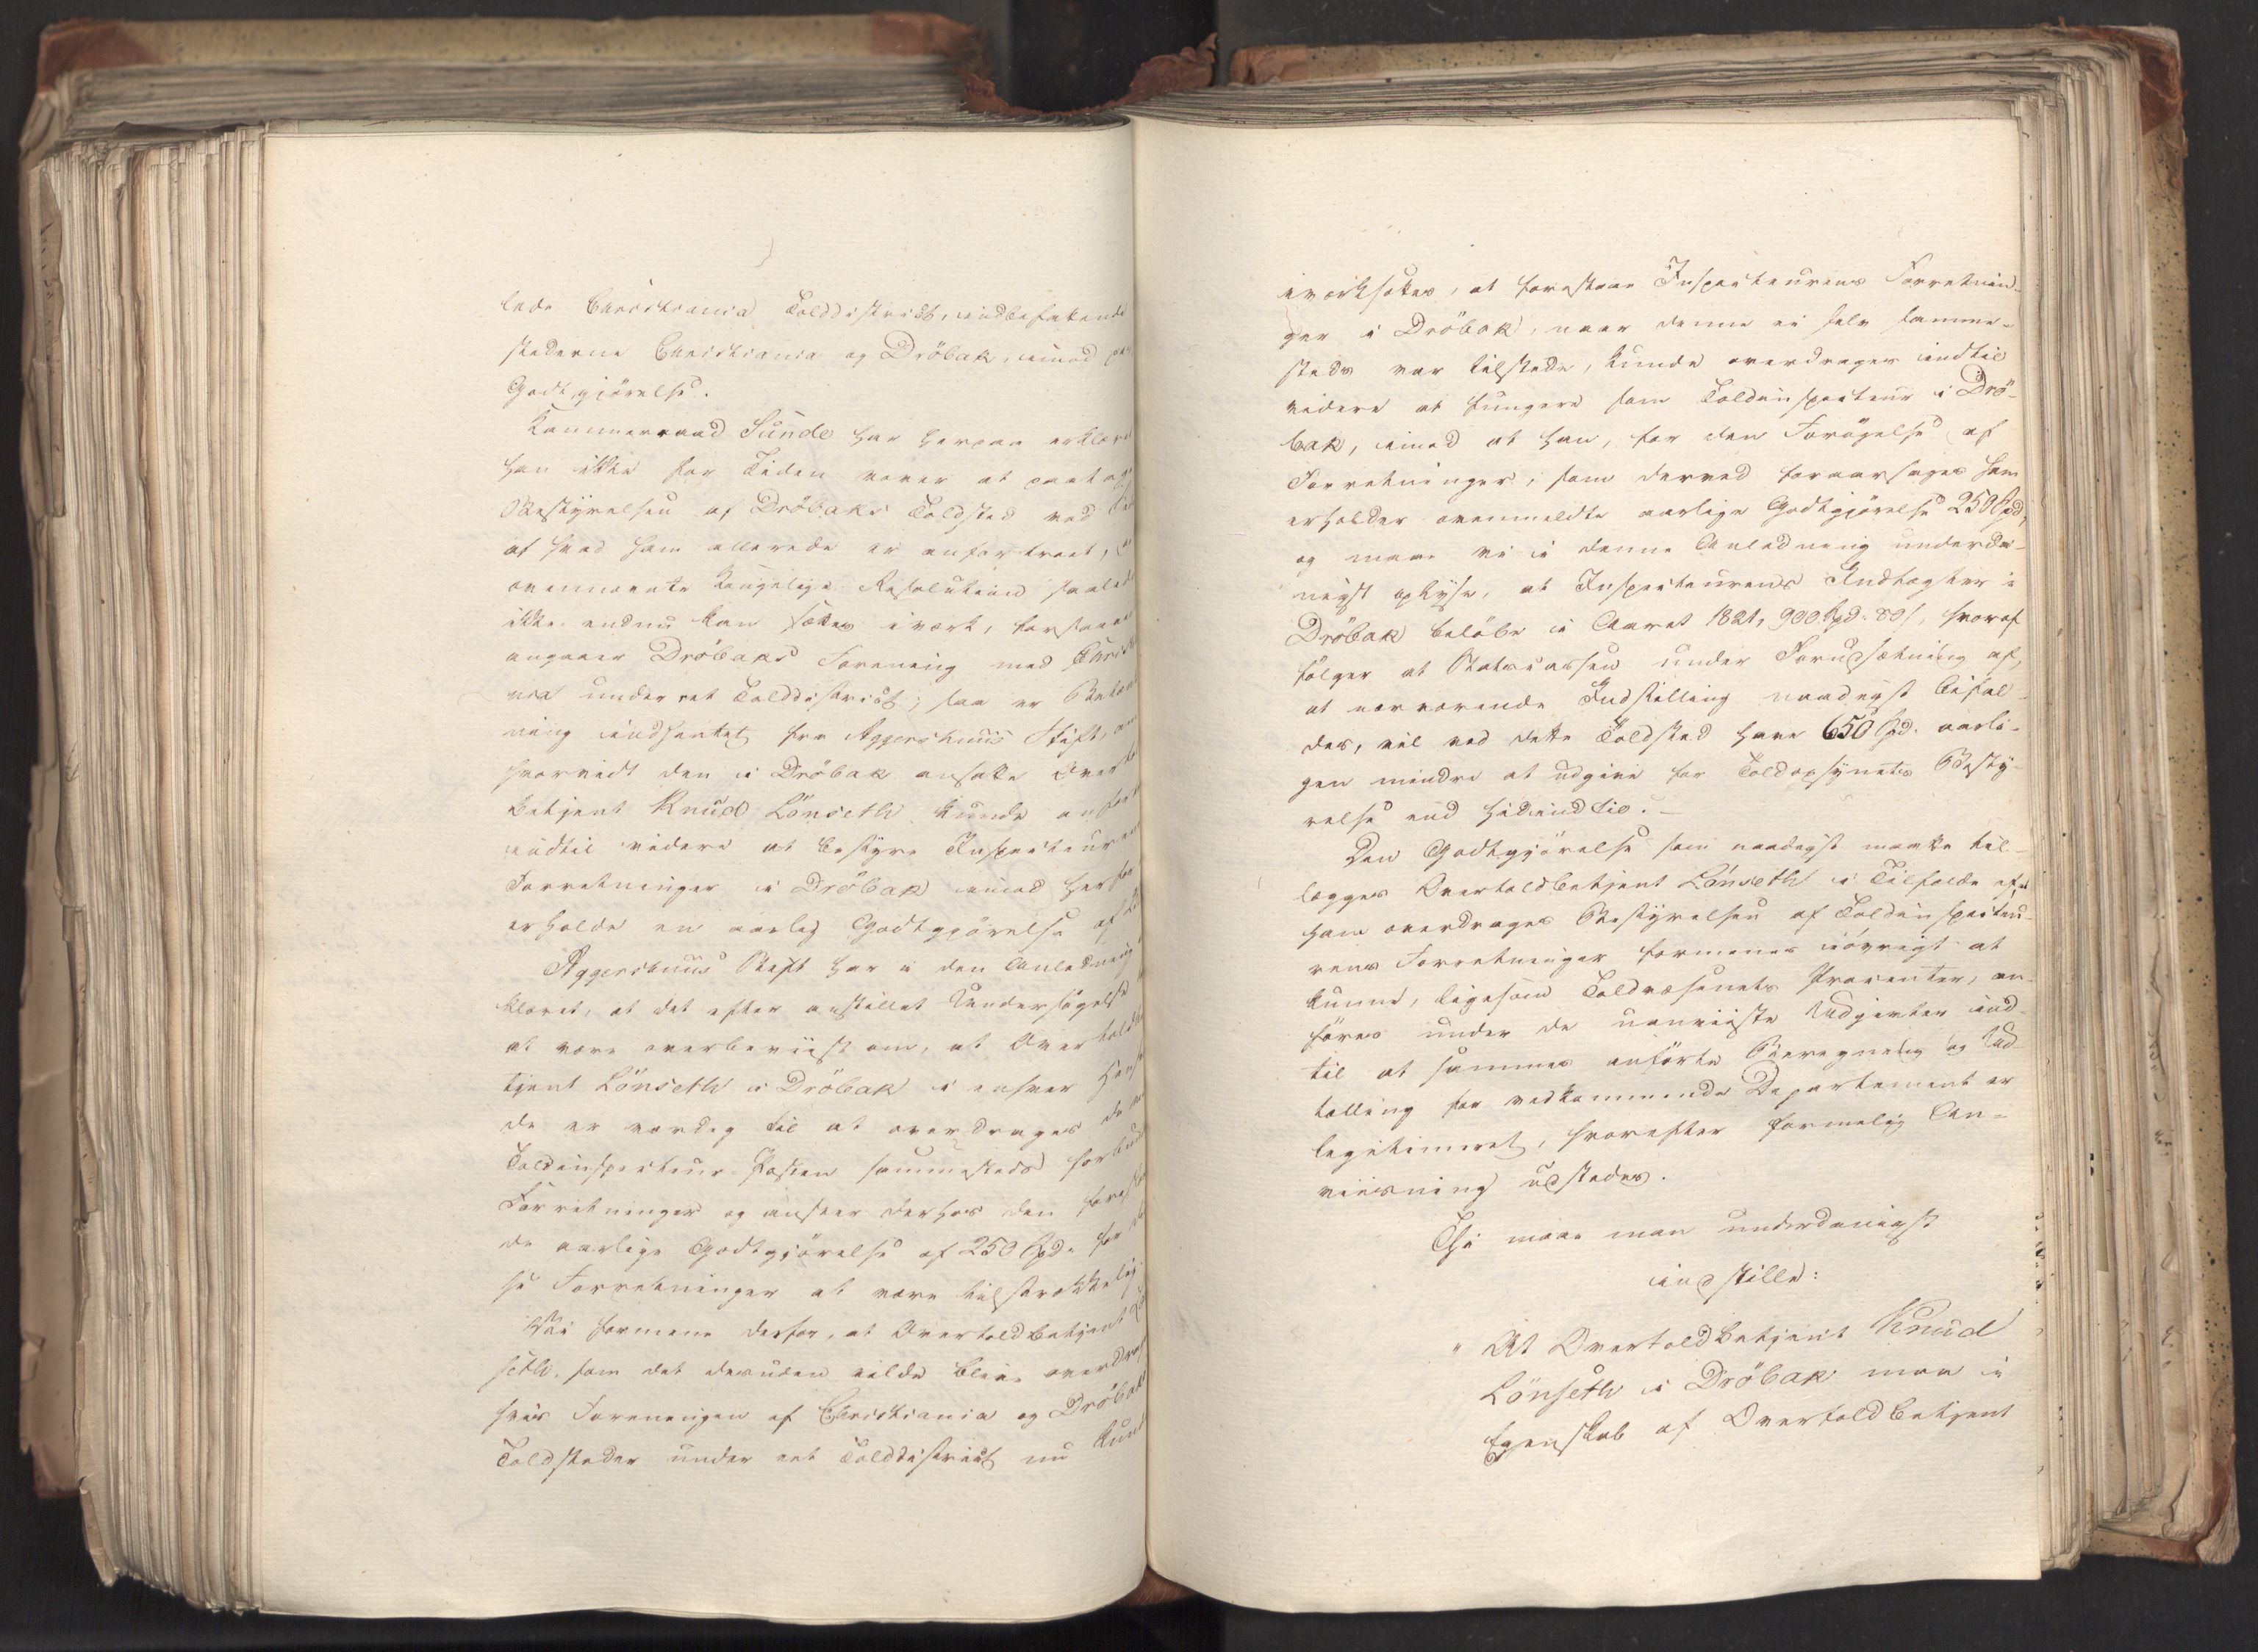 lede Christiania Tolddistrict, indbefattende
stæderne Christiania og Dröbak, imod
Godtgjörelse.
Kammerraad Sunde har herpaa erklæret
han ikke for Tiden vover at paatage
Bestyrelsen af Dröbaks Toldsted ved
af hvad ham allerede er anfortroet,
ovennævnte Kongelige Resolution saaledes
ikke endnu kan sættes i værk, forsaavidt
angaaer Dröbaks Forening med Christia
nia under eet Tolddistrict; saa er Betænk
ning indhentet fra Aggershuus Stift, om
hvorvidt den i Dröbak ansatte Overtold
betjent Knud Lönseth kunde anfortroes
indtil videre at bestyre Inspecteurens
Forretninger i Dröbak imod herfor
erholde en aarlig Godtgjörelse af
Aggershuus Stift har i den Anledning
klæret, at det efter anstillet Undersögelse
at være overbeviist om, at Overtoldbe
tjent Lönseth i Dröbak i enhver Hense
de er værdig til at overdrages de med
Toldinspecteur-Posten sammesteds forbundne
Forretninger og anseer derhos den foreslaae
de aarlige Godtgjörelse af 250 Spd. for
se Forretninger at være tilstrækkelig
Vi formene derfor, at Overtoldbetjent Lön
seth, som det desuden vilde blive overdraget
hvis Foreningen af Christiania og Dröbaks
Toldsteder under eet Tolddistrict nu kunde
iværksættes, at forestaae Inspecteurens Forretnin-
ger i Dröbak, naar denne ei selv samme-
steds var tilstede, kunde overdrages indtil
videre at fungere som Toldinspecteur i Drö-
bak, imod at han, for den Forögelse af
Forretninger, som derved foraarsages ham
erholder ovenmeldte aarlige Godtgjörelse 250 Spd,
og maae vi i denne Anledning underda-
nigst oplyse, at Inspecteurens Indtægter i
Dröbak belöbe i Aaret 1821, 900 Spd. 80 s, hvoraf
fölger at Statscassen under Forudsætning af,
at nærværende Indstilling naadigst bifal-
des, vil ved dette Toldsted have 650 Spd. aarli-
gen mindre at udgive for Toldopsynets Besty-
relse end hidindtil.-
Den Godtgjörelse som naadigst maatte til-
lægges Overtoldbetjent Lönseth i Tilfælde af, at
ham overdrages Bestyrelsen af Toldinspecteu-
rens Forretninger formenes iövrigt at
kunne, ligesom Toldvæsenets Procenter, an-
föres under de uanviiste Udgivter ind-
til at sammes anförte Beregning og Ud-
tælling for vedkommende Departement er
legitimeret, hvorefter formelig An-
viisning udstedes.
Thi maae man underdanigst
indstille:
" At Overtoldbetjent Knud
Lönseth i Dröbak maa i
Egenskab af Overtoldbetjent